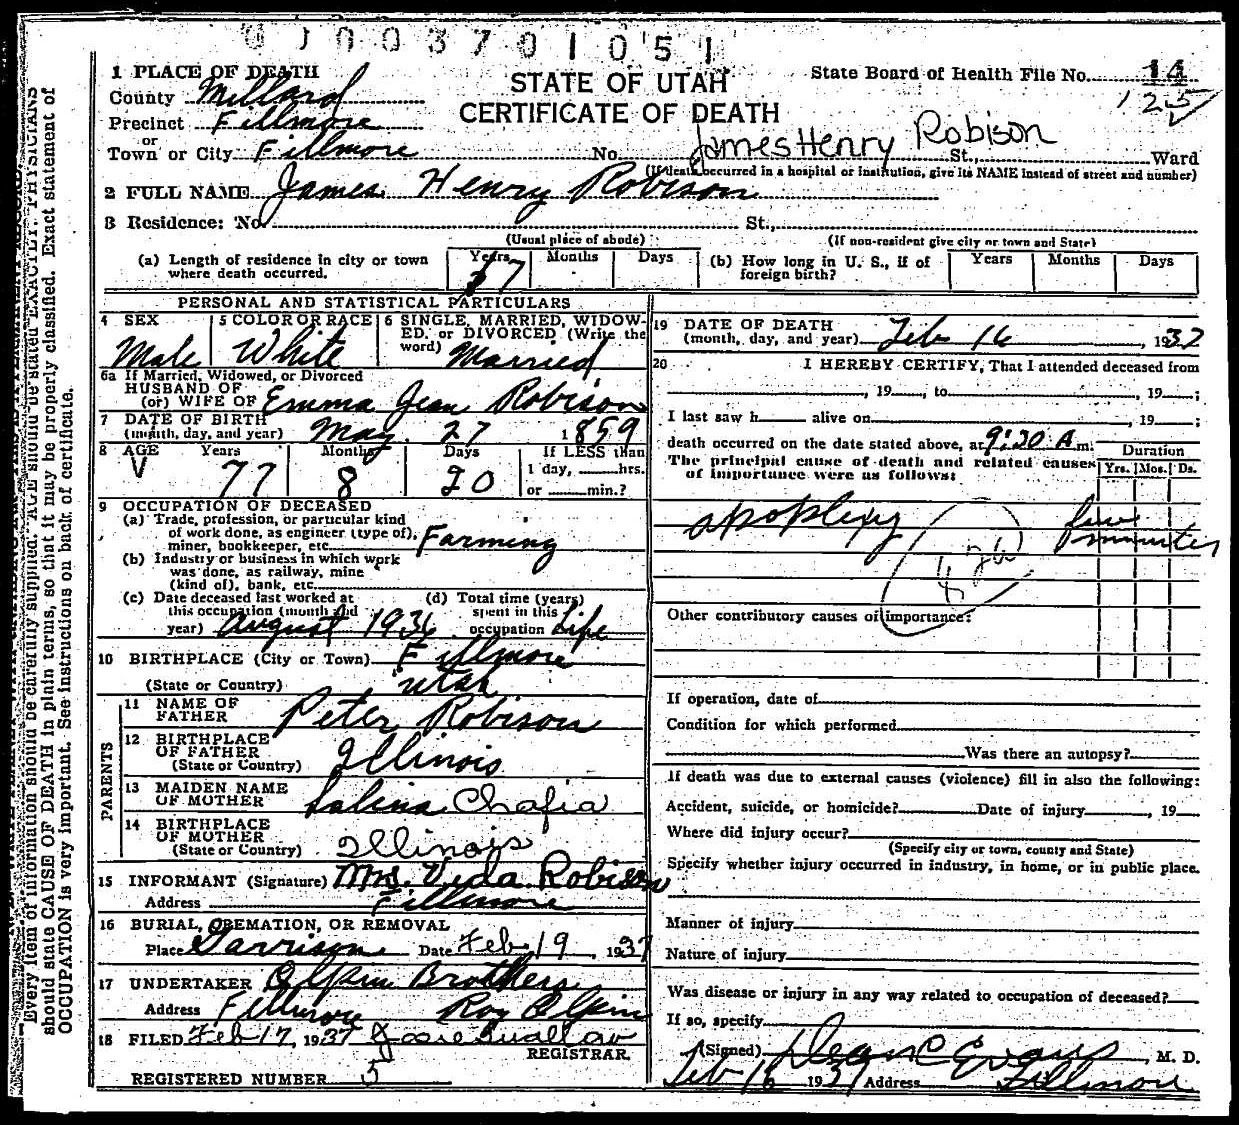 0 J 0 0 3 7 0 1 0 5 1
1 PLACE OF DEATH
STATE OF UTAH
CERTIFICATE OF DEATH
State Board of Health File No. 14
125
County Millard
Precinct Fillmore
or
Town or City Fillmore No. James Henry Robison St., Ward
(If death occurred in a hospital or institution, give its NAME instead of street and number)
2 FULL NAME James Henry Robison
3 Residence: No. St.,
(Usual place of abode) (If non-resident give city or town and State)
(a) Length of residence in city or town where death occurred. Years 37 Months Days
(b) How long in U. S., if of foreign birth? Years Months Days
PERSONAL AND STATISTICAL PARTICULARS
4 SEX Male
5 COLOR OR RACE White
6 SINGLE, MARRIED, WIDOWED, or DIVORCED (Write the word) Married
6a If Married, Widowed, or Divorced
HUSBAND OF
(or) WIFE OF Emma Jean Robison
7 DATE OF BIRTH
(month, day, and year) May. 27 1859
8 AGE Years 77 Months 8 Days 20
If LESS than
1 day, hrs.
or min.?
9 OCCUPATION OF DECEASED
(a) Trade, profession, or particular kind
of work done, as engineer (type of),
miner, bookkeeper, etc. Farming
(b) Industry or business in which work
was done, as railway, mine
(kind of), bank, etc.
(c) Date deceased last worked at
this occupation (month and
year) August 1936
(d) Total time (years)
spent in this
occupation Life
10 BIRTHPLACE (City or Town) Fillmore
(State or Country) Utah
PARENTS
11 NAME OF
FATHER Peter Robison
12 BIRTHPLACE
OF FATHER
(State or Country) Illinois
13 MAIDEN NAME
OF MOTHER Salina Chafia
14 BIRTHPLACE
OF MOTHER
(State or Country) Illinois
15 INFORMANT (Signature) Mrs. Veda Robison
Address Fillmore
16 BURIAL, CREMATION, OR REMOVAL
Place Garrison Date Feb 19, 1937
17 UNDERTAKER Olpin Brothers
Address Fillmore Roy Olpin
18 FILED Feb 17, 1937 Josie Swallow
REGISTRAR.
REGISTERED NUMBER 5
19 DATE OF DEATH
(month, day, and year) Feb 16, 1937
20 I HEREBY CERTIFY, That I attended deceased from
, 19 , to , 19 ;
I last saw h alive on , 19 ;
death occurred on the date stated above, at 9:30 A m.
The principal cause of death and related causes
of importance were as follows:
Duration
Yrs. Mos. Ds.
apoplexy few
minutes
Other contributory causes of importance:
If operation, date of
Condition for which performed
Was there an autopsy?
If death was due to external causes (violence) fill in also the following:
Accident, suicide, or homicide? Date of injury , 19
Where did injury occur?
(Specify city or town, county and State)
Specify whether injury occurred in industry, in home, or in public place.
Manner of injury
Nature of injury
Was disease or injury in any way related to occupation of deceased?
If so, specify
(Signed) Dean C Evans, M. D.
Feb 16 1937 Address Fillmore
Every item of information should be carefully supplied. AGE should be stated EXACTLY. PHYSICIANS
should state CAUSE OF DEATH in plain terms, so that it may be properly classified. Exact statement of
OCCUPATION is very important. See instructions on back of certificate.